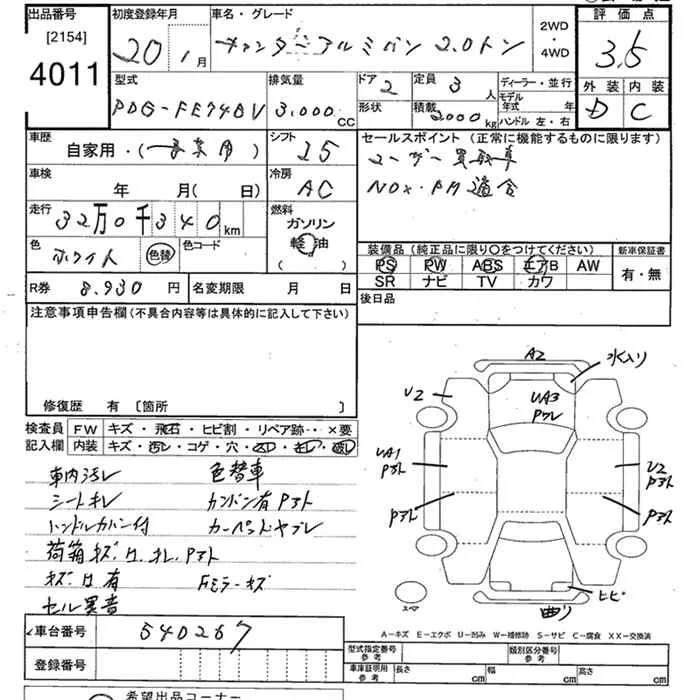 出品番号 初度登録年月 車名・グレード 2WD・4WD 評価点
[2154]
4011 20年1月 キャンター アルミバン 2.0トン 3.5
型式 排気量 ドア 定員 ディーラー・並行 外装 内装
PDG-FE74BV 3,000cc 2 3人 モデル年式 年 D C
形状 積載 2000kg ハンドル 左・右
車歴 シフト セールスポイント (正常に機能するものに限ります)
自家用・(事業用) 25 ユーザー買取車
車検 冷房 NOX・PM適合
年 月(日) AC
走行 燃料
32万0千340km ガソリン
軽油
( )
色 色コード 装備品(純正品に限り○をつけてください) 新車保証書
ホワイト 色替 PS PW ABS エアB AW 有・無
SR ナビ TV カワ
R券 8,930円 名変期限 月 日 後日品
注意事項申告欄(不具合内容等は具体的に記入して下さい)
修復歴 有 〔箇所 〕
検査員記入欄 FW キズ・飛石・ヒビ割・リペア跡‥×要
内装 キズ・汚レ・コゲ・穴・
車内汚レ 色替車
シートキレ カンバン有 Pアト
ハンドルカバー付 カーペットヤブレ
荷箱キズ、凹、キレ、Pアト
キズ、凹有 Fミラーキズ
セル異音
A2 水入り
U2 UA3
Pワレ
UA1
Pアト
U2
Pアト
Pアト Pアト
ヒビ
スマ 曲り
A-キズ E-エクボ U-凹み W-補修跡 S-サビ C-腐食 XX-交換済
車台番号 540267
登録番号
型式指定番号 参考 類別区分番号 参考
車庫証明用 参考 長さ cm 幅 cm 高さ cm
希望出品コーナー